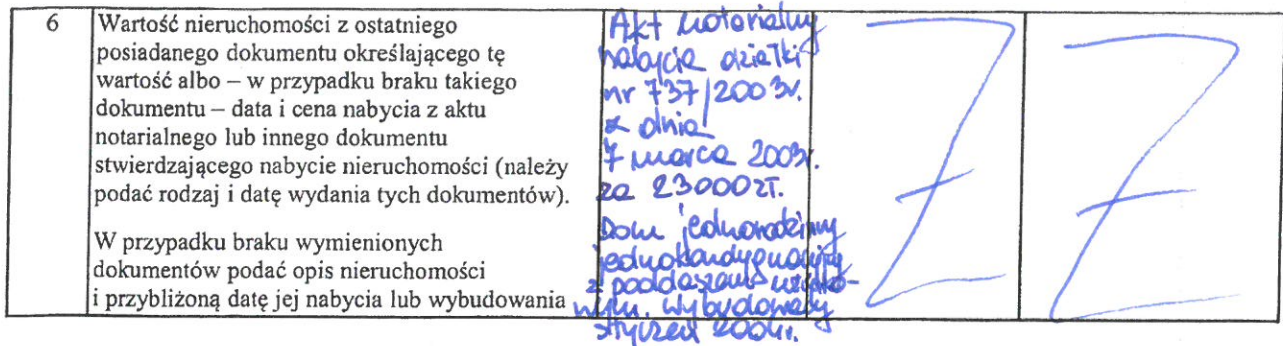 6
Wartość nieruchomości z ostatniego
posiadanego dokumentu określającego tę
wartość albo – w przypadku braku takiego
dokumentu – data i cena nabycia z aktu
notarialnego lub innego dokumentu
stwierdzającego nabycie nieruchomości (należy
podać rodzaj i datę wydania tych dokumentów).
W przypadku braku wymienionych
dokumentów podać opis nieruchomości
i przybliżoną datę jej nabycia lub wybudowania
Akt notarialny
nabycia działki
nr 737/2003r.
z dnia
7 marca 2003r.
za 23000 zł.
Dom jednorodzinny
jednokondygnacyjny
z poddaszem użytko-
wym. Wybudowany
styczeń 2004r.